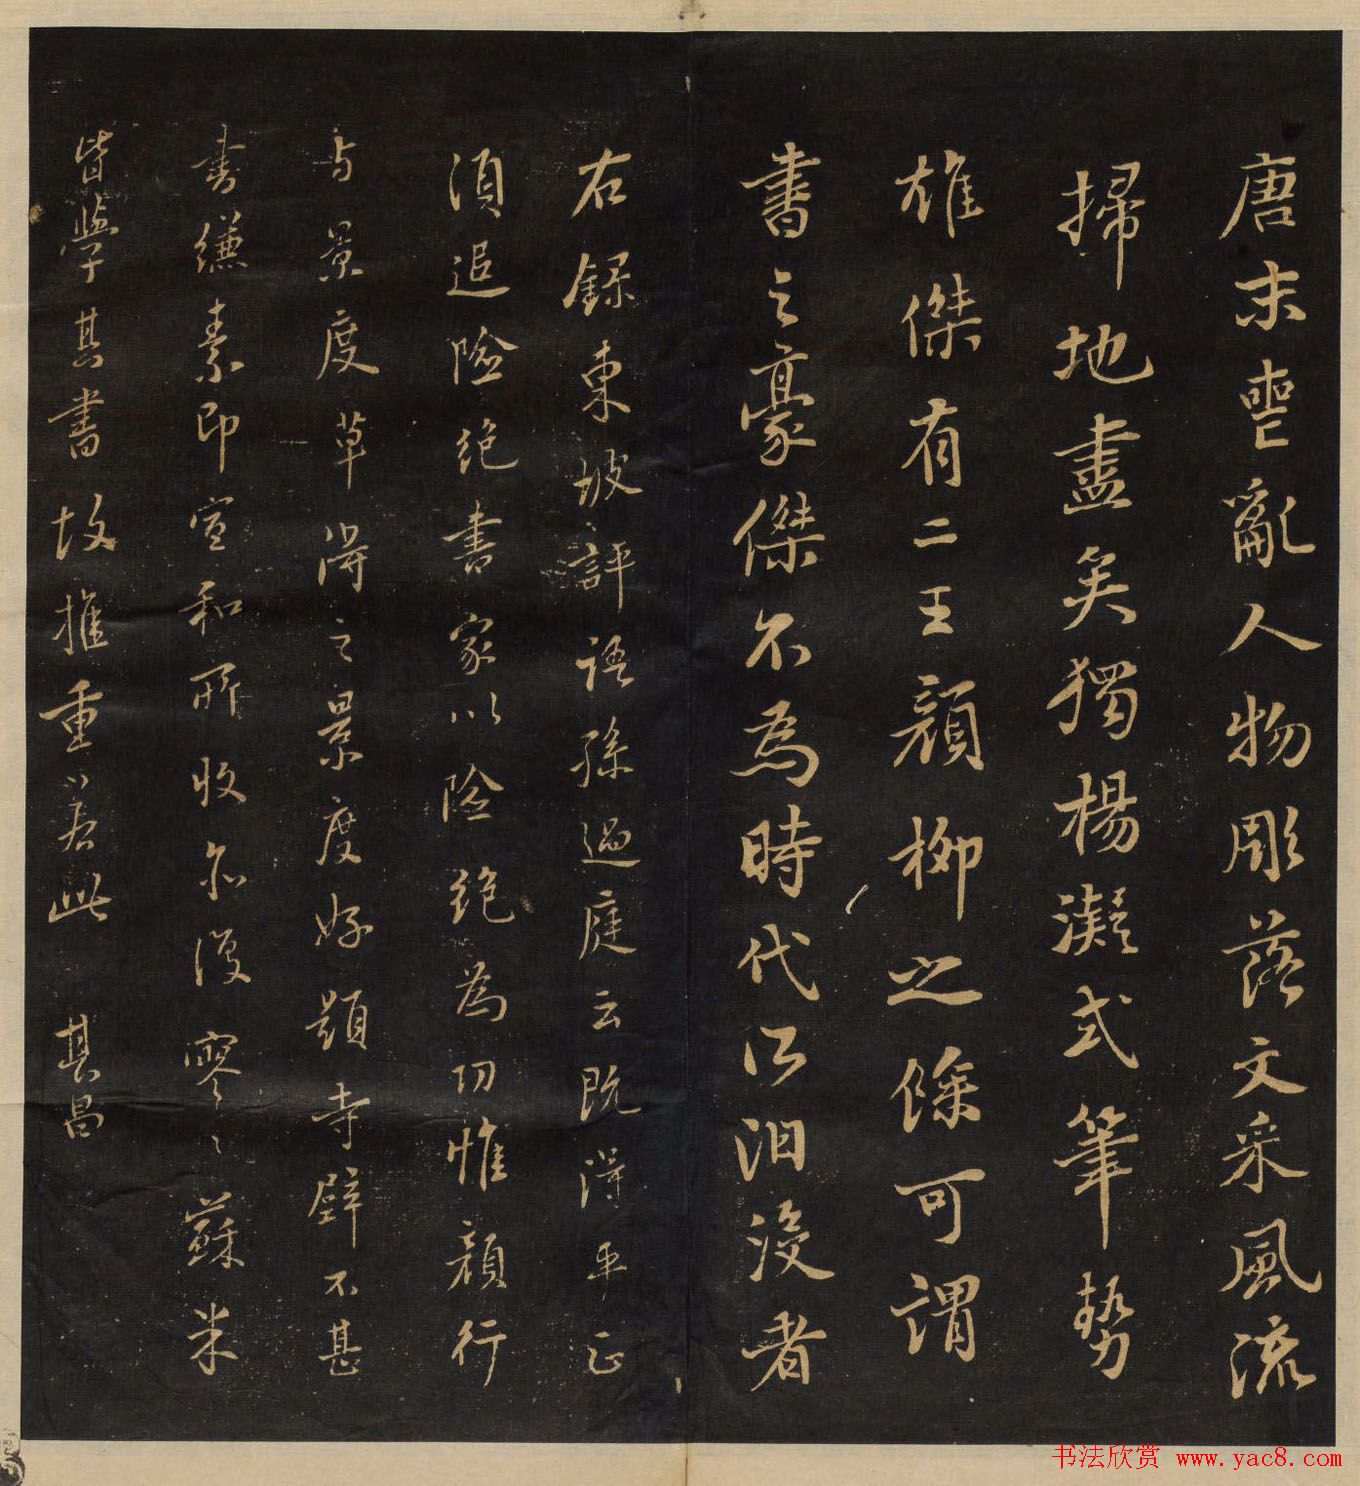 唐末喪亂人物彫落文采風流
掃地盡矣獨楊凝式筆勢
雄傑有二王顏柳之餘可謂
書之豪傑不為時代所汩沒者
右錄東坡評語孫過庭云既得平正
須追險絕書家以險絕為功惟顏行
与景度草得之景度好題寺壁不甚
書縑素即宣和所收亦復寥〻蘇米
皆學其書故推重若此 其昌
书法欣赏 www.yac8.com